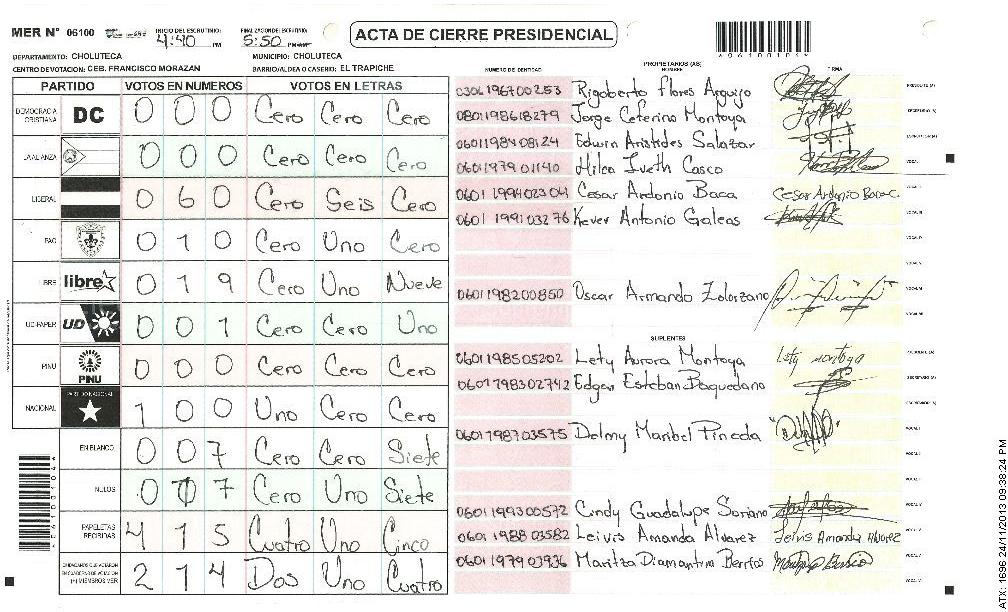 MER N° 06100 INICIO DEL ESCRUTINIO: 4:40 PM FINALIZACION DEL ESCRUTINIO: 5:50 PM
ACTA DE CIERRE PRESIDENCIAL
DEPARTAMENTO: CHOLUTECA MUNICIPIO: CHOLUTECA
CENTRO DE VOTACION: CEB. FRANCISCO MORAZAN BARRIO/ALDEA O CASERIO: EL TRAPICHE
PARTIDO VOTOS EN NUMEROS VOTOS EN LETRAS
DEMOCRACIA CRISTIANA DC 0 0 0 Cero Cero Cero
LA ALIANZA 0 0 0 Cero Cero Cero
LIBERAL 0 6 0 Cero Seis Cero
FAO 0 1 0 Cero Uno Cero
libre 0 1 9 Cero Uno Nueve
UD-FAPER UD 0 0 1 Cero Cero Uno
PINU PINU 0 0 0 Cero Cero Cero
NACIONAL PARTIDO NACIONAL 1 0 0 Uno Cero Cero
EN BLANCO 0 0 7 Cero Cero Siete
NULOS 0 1 7 Cero Uno Siete
PAPELETAS RECIBIDAS 4 1 5 Cuatro Uno Cinco
CIUDADANOS QUE VOTARON EN CUADERNO DE VOTACION (+) MIEMBROS MER 2 1 4 Dos Uno Cuatro
PROPIETARIOS (AS)
NUMERO DE IDENTIDAD NOMBRE FIRMA
0306196700253 Rigoberto Flores Arguijo PRESIDENTE (A)
0801198618279 Jorge Ceferino Montoya SECRETARIO (A)
Edwin Aristides Salazar ESCRUTADOR (A)
0601197901140 Hilca Iveth Casco VOCAL I
0601199402304 Cesar Ardonio Baca Cesar Ardonio Baca C. VOCAL II
0601199103276 Kever Antonio Galeas VOCAL III
VOCAL IV
VOCAL V
0601198200850 Oscar Armando Zolorzano
SUPLENTES
0601198505202 Lety Aurora Montoya Lety montoya PRESIDENTE (A)
0601198302742 Edgar Esteban Baquedano SECRETARIO (A)
ESCRUTADOR (A)
0601198703575 Delmy Maribel Pineda VOCAL I
0601199300572 Cindy Guadalupe Soriano
0601198803582 Leivis Amanda Alvarez Leivis Amanda Alvarez
0601197903936 Maritza Diamantina Berrios
ATX: 1696 24/11/2013 09:38:24 PM